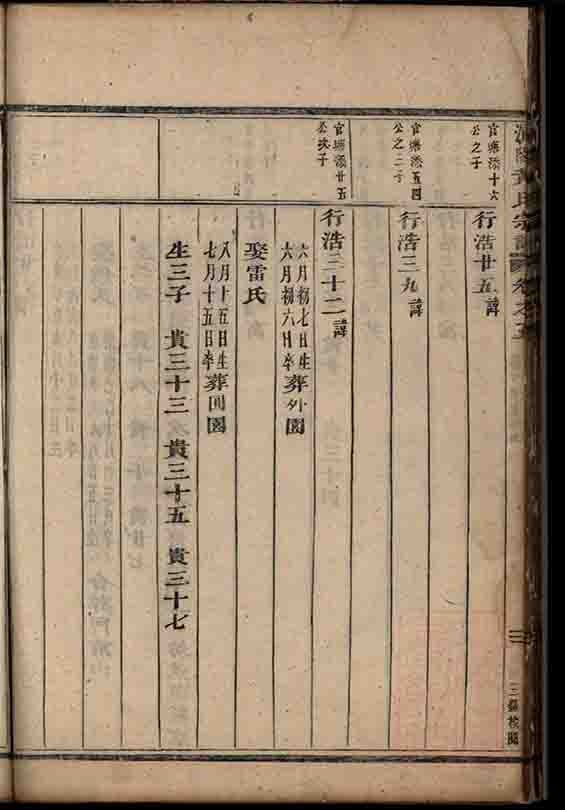 氏宗譜 卷之五
三
官添十六
公之子
行浩廿五 諱
官添五四
公之子
行浩三九 諱
官添廿五
公次子
行浩三十二 諱
六月初七日生
六月初六日卒 葬外園
娶雷氏
八月十五日生
七月十五日卒 葬園
生三子 貴三十三 貴三十五 貴三十七